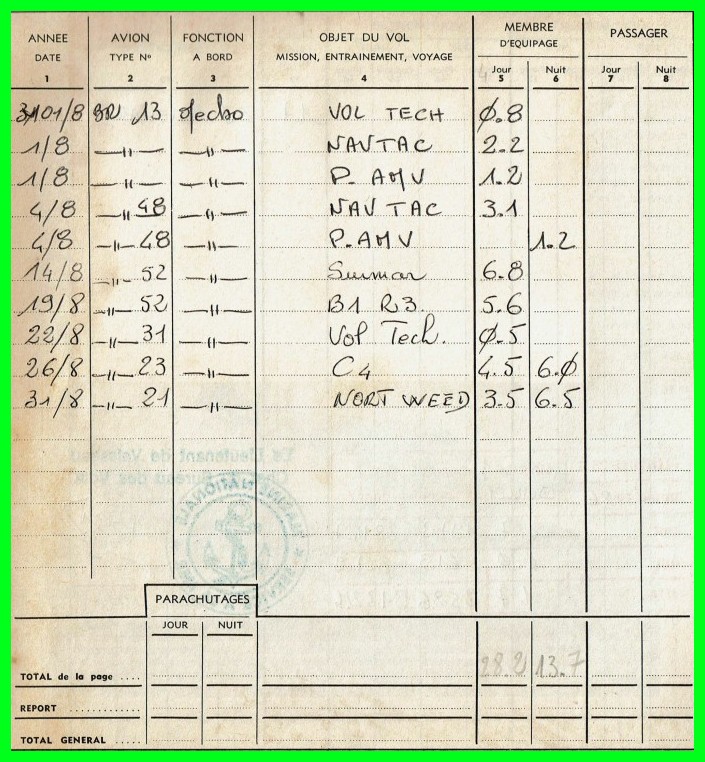 ANNEE AVION FONCTION OBJET DU VOL MEMBRE D'EQUIPAGE PASSAGER
DATE TYPE Nº A BORD MISSION, ENTRAINEMENT, VOYAGE Jour Nuit Jour Nuit
1 2 3 4 5 6 7 8
01/8 13 VOL TECH Ø.8
1/8 —"— —"— NAVTAC 2.2
1/8 —"— —"— P. AMV 1.2
4/8 —"— 48 —"— NAV TAC 3.1
4/8 —"— 48 —"— P.AMV 1.2
14/8 —"— 52 —"— Surmar 6.8
19/8 —"— 52 —"— B1 R3 5.6
22/8 —"— 31 —"— Vol Tech. Ø.5
26/8 —"— 23 —"— C4 4.5 6.Ø
31/8 —"— 21 —"— NORT WEED 3.5 6.5
PARACHUTAGES
JOUR NUIT
TOTAL de la page .... 28.2 13.7
REPORT
TOTAL GENERAL